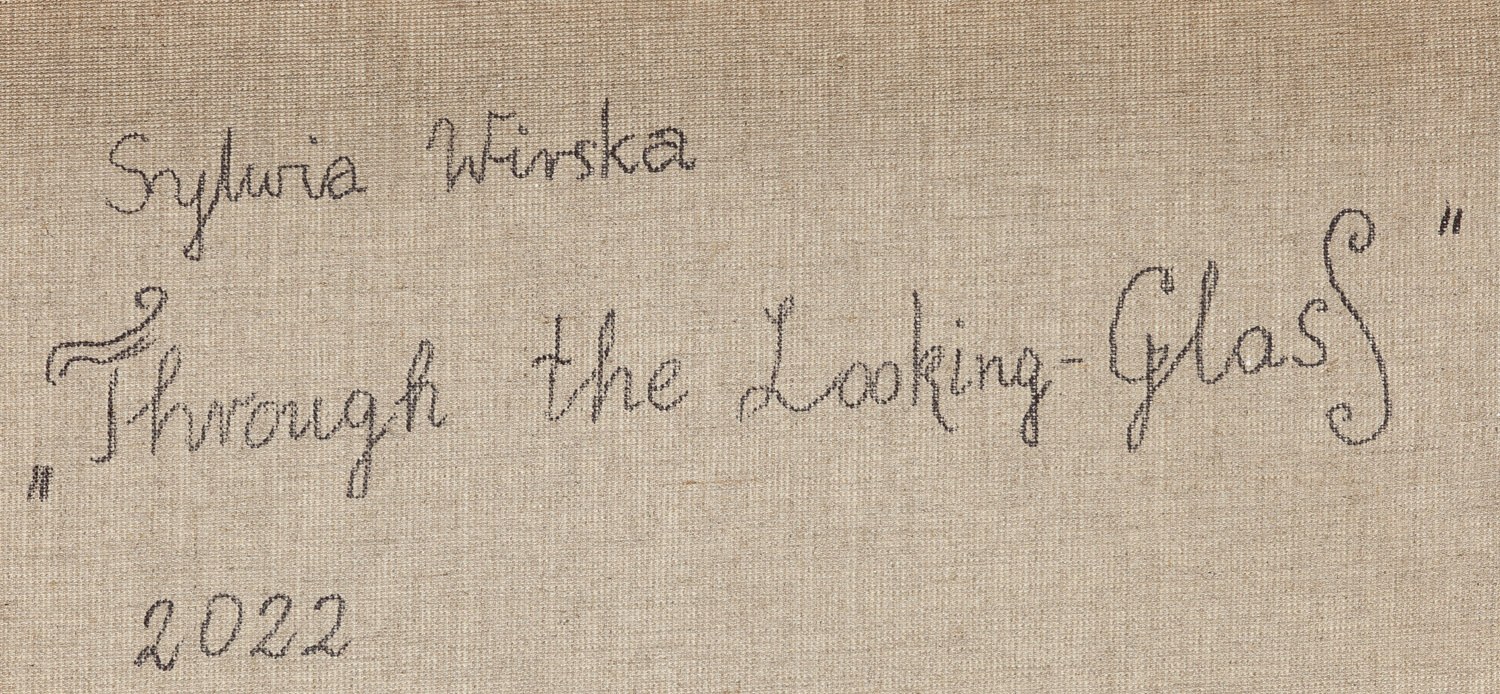 Sylwia Wirska
„Through the Looking-Glass"
2022